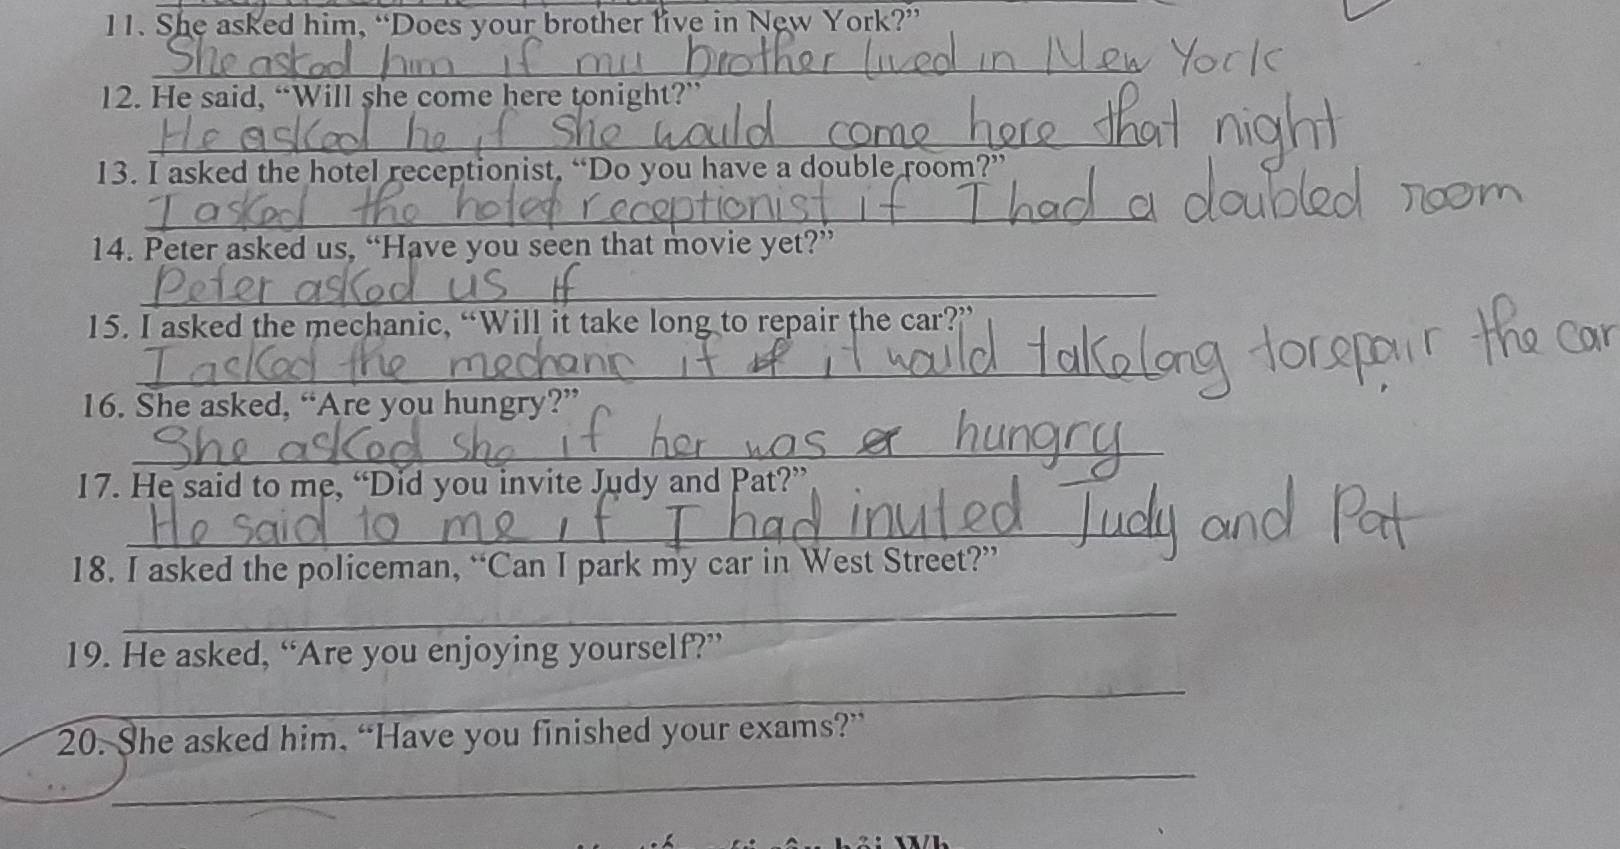 11. She asked him, “Does your brother live in New York?”
She asked him if my brother lived in New York
12. He said, “Will she come here tonight?”
He asked he if she would come here that night
13. I asked the hotel receptionist, “Do you have a double room?”
I asked the hotel receptionist if I had a doubled room
14. Peter asked us, “Have you seen that movie yet?”
Peter asked us if
15. I asked the mechanic, “Will it take long to repair the car?”
I asked the mechanic if it would take long to repair the car
16. She asked, “Are you hungry?”
She asked she if her was hungry
17. He said to me, “Did you invite Judy and Pat?”
He said to me if I had invited Judy and Pat
18. I asked the policeman, “Can I park my car in West Street?”
19. He asked, “Are you enjoying yourself?”
20. She asked him, “Have you finished your exams?”